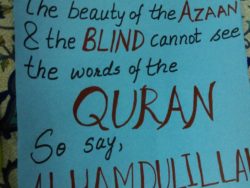 the beauty of the AZAAN
& the BLIND cannot see
the words of the
QURAN
So say,
ALHAMDULILLAH